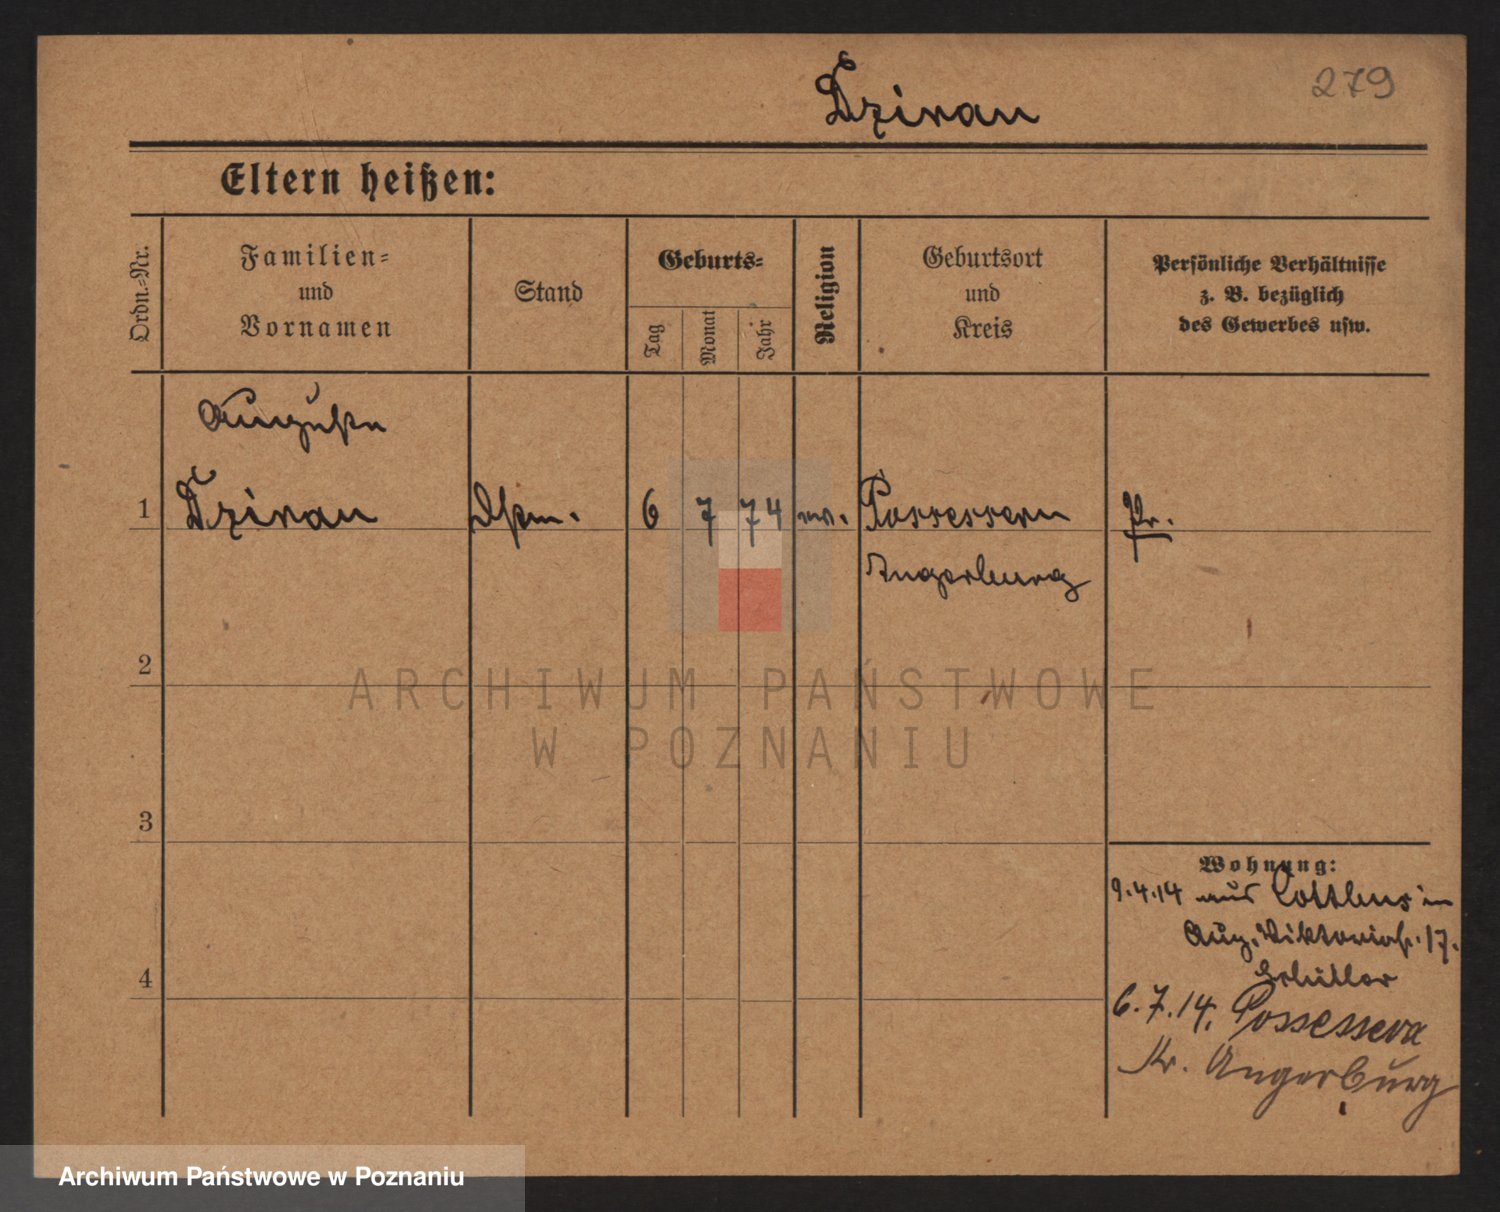 Dziran
279
Eltern heißen:
Ordn.-Nr.
Familien-
und
Vornamen
Stand
Geburts-
Tag
Monat
Jahr
Religion
Geburtsort
und
Kreis
Persönliche Verhältnisse
z. B. bezüglich
des Gewerbes usw.
Auguste
1 Dziran 6 7 74 Possessern Pr.
Angerburg
2
3
Wohnung:
9.4.14 aus Cottbus in
Aug. Viktoriastr. 17.
4
6.7.14. Possessern
Kr. Angerburg
ARCHIWUM PAŃSTWOWE
W POZNANIU
Archiwum Państwowe w Poznaniu